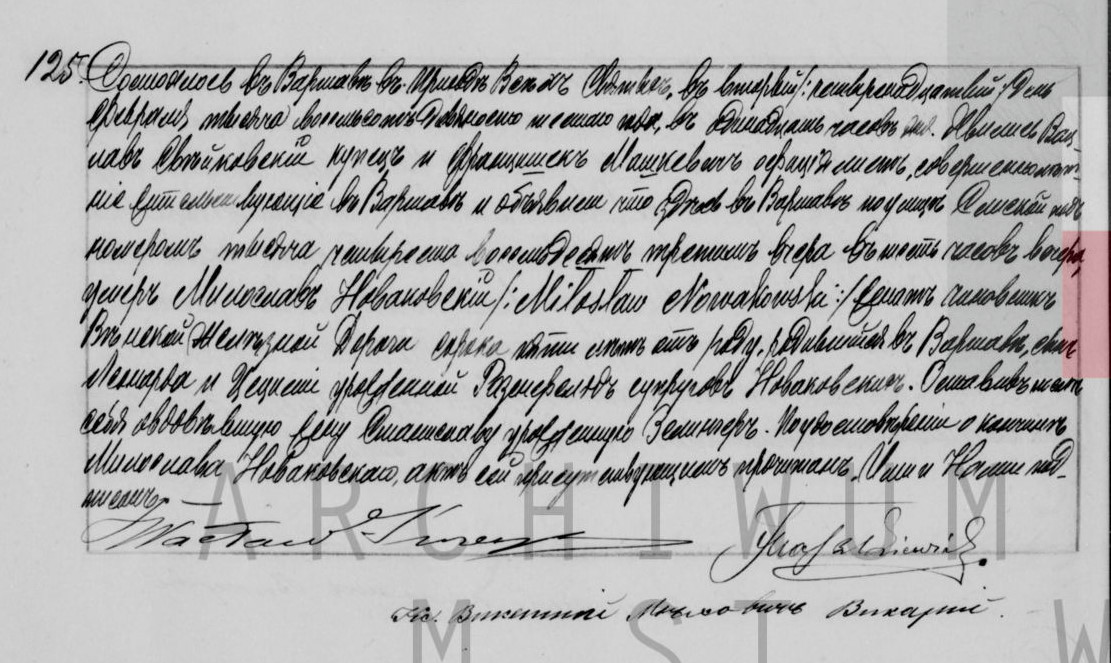 125. Состоялось въ Варшавѣ въ приходѣ Всѣхъ Святыхъ, въ второй /: четырнадцатый :/ день
Февраля тысяча восемьсотъ девяносто шестаго года, въ одинадцать часовъ дня. Явились Вац-
лавъ Свѣйковскій купецъ и Францишекъ Машкевичъ официялистъ, совершеннолѣт-
ніе жительствующіе въ Варшавѣ и объявили что здѣсь въ Варшавѣ по улицѣ подъ
номеромъ тысяча четыреста восемьдесятъ третьимъ вчера въ шесть часовъ вечера,
умеръ Милославъ Новаковскій /: Miłosław Nowakowski :/ женатъ чиновникъ
Вѣнской Желѣзной Дороги сорока пяти лѣтъ отъ роду, родившійся въ Варшавѣ, сынъ
Леонарда и урожденной супруговъ Новаковскихъ. Оставивъ послѣ
себя овдовѣвшую жену Станиславу урожденную Зелингеръ. По удостовѣреніи о кончинѣ
Милослава Новаковскаго, актъ сей присутствующимъ прочитанъ, Ими и Нами под-
писанъ. —
Wacław
Кс. Викентій Викарій.
ARCHIWUM
M ST W